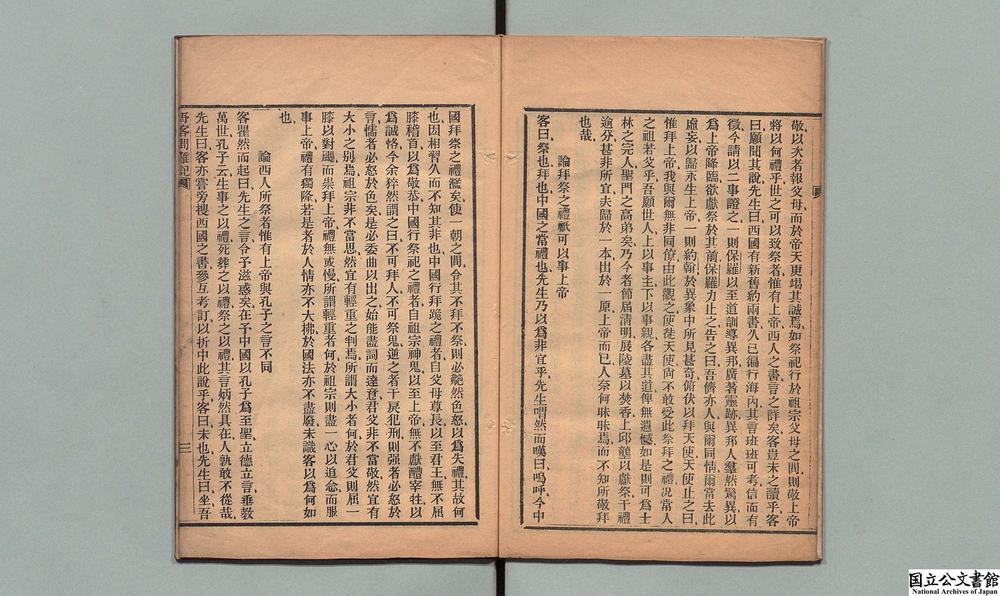 敬以次者報父母而於帝天更竭其誠焉如祭祀行於祖宗父母之間則敬上帝
將以何禮乎世之可以致祭者惟有上帝西人之書言之詳矣客豈未之讀乎客
曰願聞其說先生曰西國有新舊約兩書久已徧行海內其言班班可考信而有
徵今請以二事證之一則保羅以至道訓導異邦廣著靈跡異邦人羣然驚異以
爲上帝降臨欲獻祭於其前保羅力止之告之曰吾儕亦人與爾同情爾當去此
虛妄以歸永生上帝一則約翰於異象中所見甚奇俯伏以拜天使天使止之曰
惟拜上帝我與爾無非同僚由此觀之使徒天使尙不敢受此祭拜之禮況當人
之祖若父乎吾願世人上以事主下以事親各盡其道俾無遺憾如是則可爲士
林之完人聖門之高弟矣乃今者節屆清明展陵墓以焚香上邱壟以獻祭干禮
逾分甚非所宜夫歸於一本出於一原上帝而已人奈何昧昧焉而不知所敬拜
也哉
論拜祭之禮祇可以事上帝
客曰祭也拜也中國之當禮也先生乃以爲非宜乎先生喟然而嘆曰嗚呼今中
國拜祭之禮濫矣使一朝之間令其不拜不祭則必艴然色怒以爲失禮其故何
也因相習久而不知其非也中國行拜跪之禮者自父母尊長以至君王無不屈
膝稽首以爲敬恭中國行祭祀之禮者自祖宗神鬼以至上帝無不獻醴宰牲以
爲誠恪今余猝然謂之曰不可拜人不可祭鬼逆之者干戾犯刑則强者必怒於
言懦者必怒於色矣是必委曲以出之始能盡詞而達意君父非不當敬然宜有
大小之別焉祖宗非不當思然宜有輕重之判焉所謂大小者何於君父則屈一
膝以對颺而崇拜上帝禮無或慢所謂輕重者何於祖宗則盡一心以追念而服
事上帝禮有獨隆若是者於人情亦不大拂於國法亦不盡廢未識客以爲何如
也
論西人所祭者惟有上帝與孔子之言不同
客瞿然而起曰先生之言令予滋惑矣在予中國以孔子爲至聖立德立言垂教
萬世孔子云生事之以禮死葬之以禮祭之以禮其言炳然具在人孰敢不從哉
先生曰客亦嘗旁搜西國之書參互考訂以折中此說乎客曰未也先生曰坐吾
三
国立公文書館
National Archives of Japan